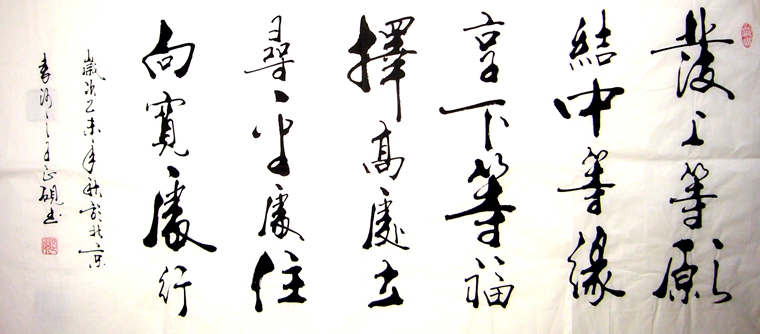 發上等願
結中等緣
享下等福
擇高處立
尋平處住
向寬處行
歲次乙未年秋於北京